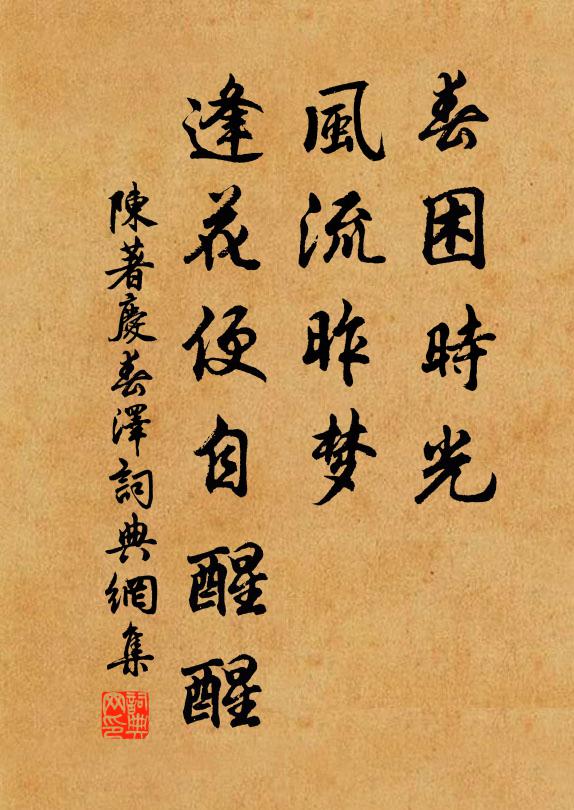 春困時光
風流昨梦
逢花便自醒醒
陳著慶春澤詞典網集
詞典
网印